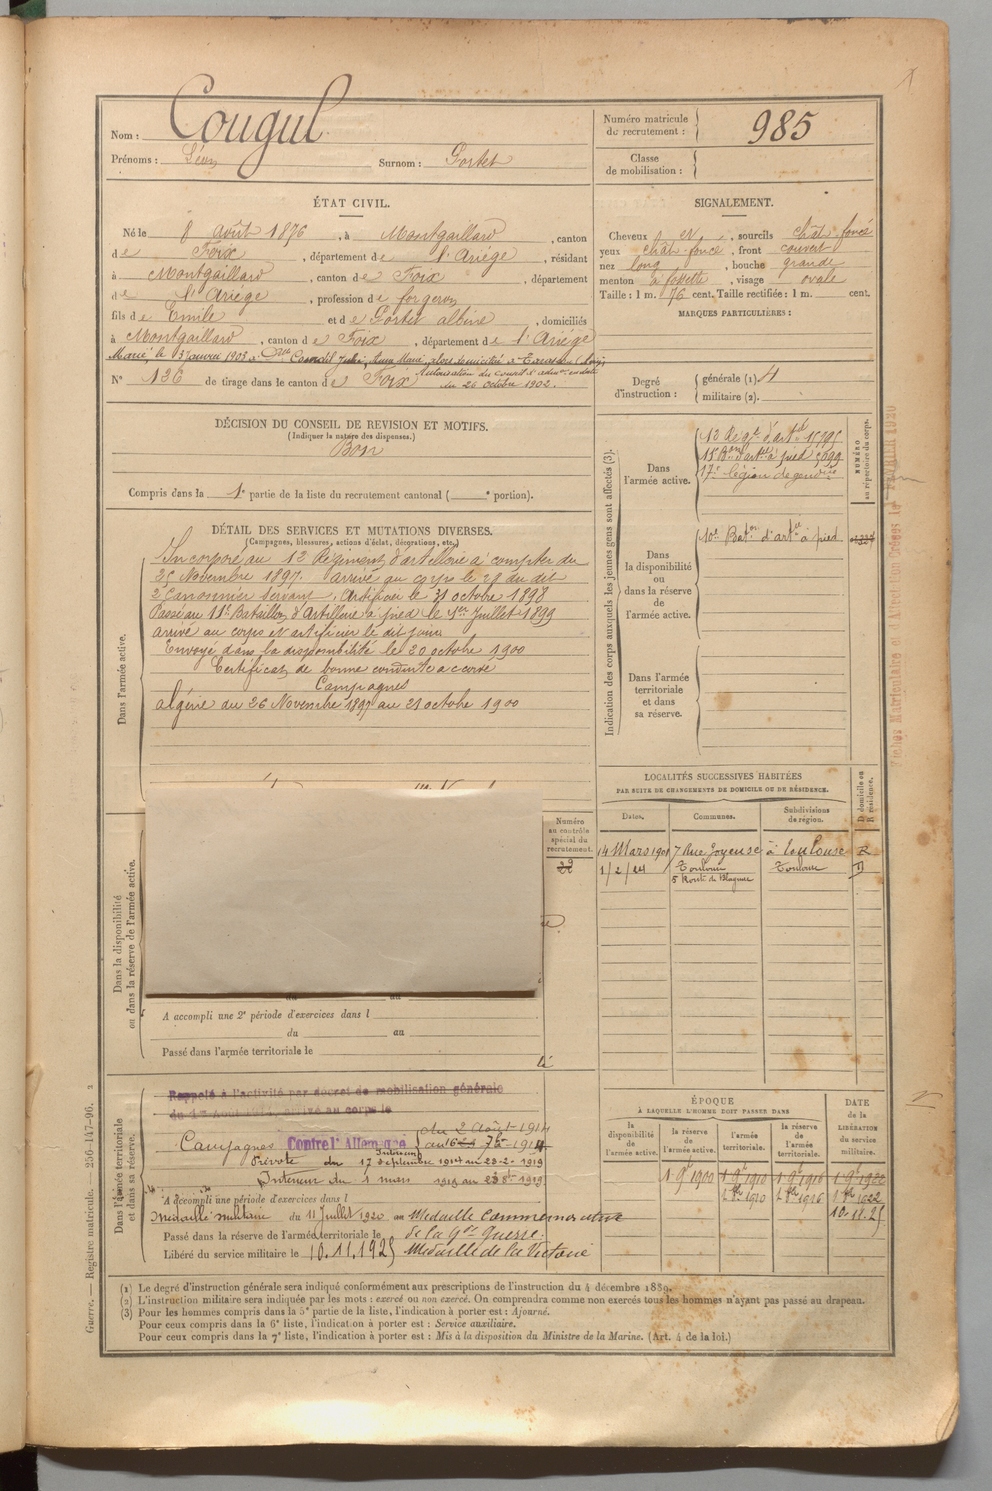 Nom : Cougul
Prénoms : Léon Surnom : Gortet
Numéro matricule de recrutement : 985
Classe de mobilisation :
ÉTAT CIVIL.
Né le 8 août 1876, à Montgaillard, canton
de Foix, département de l'Ariège, résidant
à Montgaillard, canton de Foix, département
de l'Ariège, profession de forgeron
fils de Emile et de Gortet albine, domiciliés
à Montgaillard, canton de Foix, département de l'Ariège
Marié le 13 Janvier 1903 à Dlle
Autorisation du conseil d'admon en date
du 26 octobre 1902.
N° 136 de tirage dans le canton de Foix
SIGNALEMENT.
Cheveux et, sourcils chât foncé
yeux chât foncé, front couvert
nez long, bouche grande
menton à fossette, visage ovale
Taille : 1 m. 76 cent. Taille rectifiée : 1 m. cent.
MARQUES PARTICULIÈRES :
Degré d'instruction : générale (1). 4
militaire (2).
DÉCISION DU CONSEIL DE REVISION ET MOTIFS.
(Indiquer la nature des dispenses.)
Bon
Compris dans la 1e partie de la liste du recrutement cantonal ( e portion).
DÉTAIL DES SERVICES ET MUTATIONS DIVERSES.
(Campagnes, blessures, actions d'éclat, décorations, etc.)
Dans l'armée active.
Incorporé au 12 Régiment d'artillerie à compter du
25 Novembre 1897. arrivé au corps le 29 du dit
2 Canonnier Servant. Artificier le 31 octobre 1898
Passé au 11e Bataillon d'Artillerie à pied le 1er Juillet 1899
arrivé au corps et artificier le dit jour
Envoyé dans la disponibilité le 20 octobre 1900
Certificat de bonne conduite accordé
Campagnes
algérie du 26 Novembre 1897 au 21 octobre 1900
Indication des corps auxquels les jeunes gens sont affectés (3).
NUMÉRO au répertoire du corps.
Dans l'armée active.
12 Régt d'artie
11 Bon d'artie à pied 5699
17e légion de gendrie
Dans la disponibilité ou dans la réserve de l'armée active.
10e Baton d'artie à pied
Dans l'armée territoriale et dans sa réserve.
Fiches Matriculaire et d'Affectation Créées le FEVRIER 1920
LOCALITÉS SUCCESSIVES HABITÉES
PAR SUITE DE CHANGEMENTS DE DOMICILE OU DE RÉSIDENCE.
Dates. Communes. Subdivisions de région. D domicile ou R résidence.
14 Mars 1901 7 Rue Joyeuse à Toulouse R
1/2/24 Toulouse Toulouse D
5 Route de Blagnac
Dans la disponibilité ou dans la réserve de l'armée active.
Numéro au contrôle spécial du recrutement.
du au
A accompli une 2e période d'exercices dans l
du au
Passé dans l'armée territoriale le
Dans l'armée territoriale et dans sa réserve.
Rappelé à l'activité par décret de mobilisation générale
du 1er Août 1914, arrivé au corps le
Campagnes Contre l'Allemagne du 2 Août 1914
au 16 7bre 1914
Intérieur
Prévôté du 17 Septembre 1914 au 28-2-1919
Intérieur du 1 mars 1919 au 23 8bre 1919
A accompli une période d'exercices dans l
Médaille militaire du 11 Juillet 1920 au Médaille Commémorative
Passé dans la réserve de l'armée territoriale le de la Gde Guerre.
Libéré du service militaire le 10.11.1925 Médaille de la Victoire
ÉPOQUE
À LAQUELLE L'HOMME DOIT PASSER DANS
DATE de la LIBÉRATION du service militaire.
la disponibilité de l'armée active. la réserve de l'armée active. l'armée territoriale. la réserve de l'armée territoriale.
1 9e 1900 1 9e 1910 1 9e 1916 1 9e 1922
1 8bre 1910 1 8bre 1916 1 8bre 1922
10-11-25
(1) Le degré d'instruction générale sera indiqué conformément aux prescriptions de l'instruction du 4 décembre 1889.
(2) L'instruction militaire sera indiquée par les mots : exercé ou non exercé. On comprendra comme non exercés tous les hommes n'ayant pas passé au drapeau.
(3) Pour les hommes compris dans la 5e partie de la liste, l'indication à porter est : Ajourné.
Pour ceux compris dans la 6e liste, l'indication à porter est : Service auxiliaire.
Pour ceux compris dans la 7e liste, l'indication à porter est : Mis à la disposition du Ministre de la Marine. (Art. 4 de la loi.)
Guerre. — Registre matricule. — 256-147-96. 2